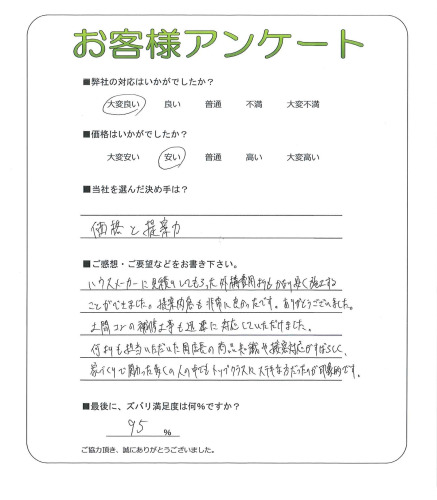 お客様アンケート
■弊社の対応はいかがでしたか？
大変良い 良い 普通 不満 大変不満
■価格はいかがでしたか？
大変安い 安い 普通 高い 大変高い
■当社を選んだ決め手は？
価格と提案力
■ご感想・ご要望などをお書き下さい。
ハウスメーカーに見積りしてもらった外構費用よりもかなり安く施工する
ことができました。提案内容も非常に良かったです。ありがとうございました。
土間コンの補修工事も迅速に対応していただけました。
何よりも担当いただいた店長の商品知識や接客対応がすばらしく、
家づくりで関わった多くの人の中でもトップクラスにステキな方だったのが印象的です。
■最後に、ズバリ満足度は何％ですか？
95 %
ご協力頂き、誠にありがとうございました。